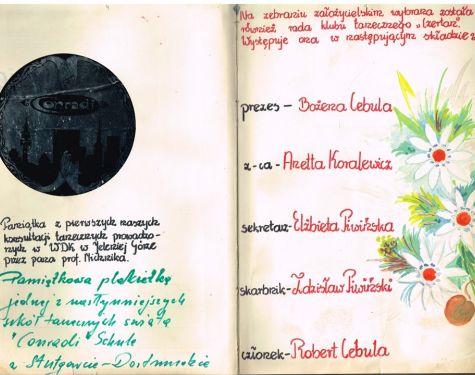 Conradi
Pamiątka z pierwszych naszych
konsultacji tanecznych prowadzo-
nych w WDK w Jeleniej Górze
przez pana prof. Nidzika.
Pamiątkowa plakietka
jednej z najsłynniejszych
szkół tanecznych świata
"Conradi" Schule
z Stutgarcie-
Na zebraniu założycielskim wybrana została
również rada klubu tanecznego „Izerlaz".
Występuje ona w następującym składzie:
prezes - Bożena Cebula
z-ca - Anetta Koralewicz
sekretarz - Elżbieta Piwińska
skarbnik - Zdzisław Piwiński
członek - Robert Cebula